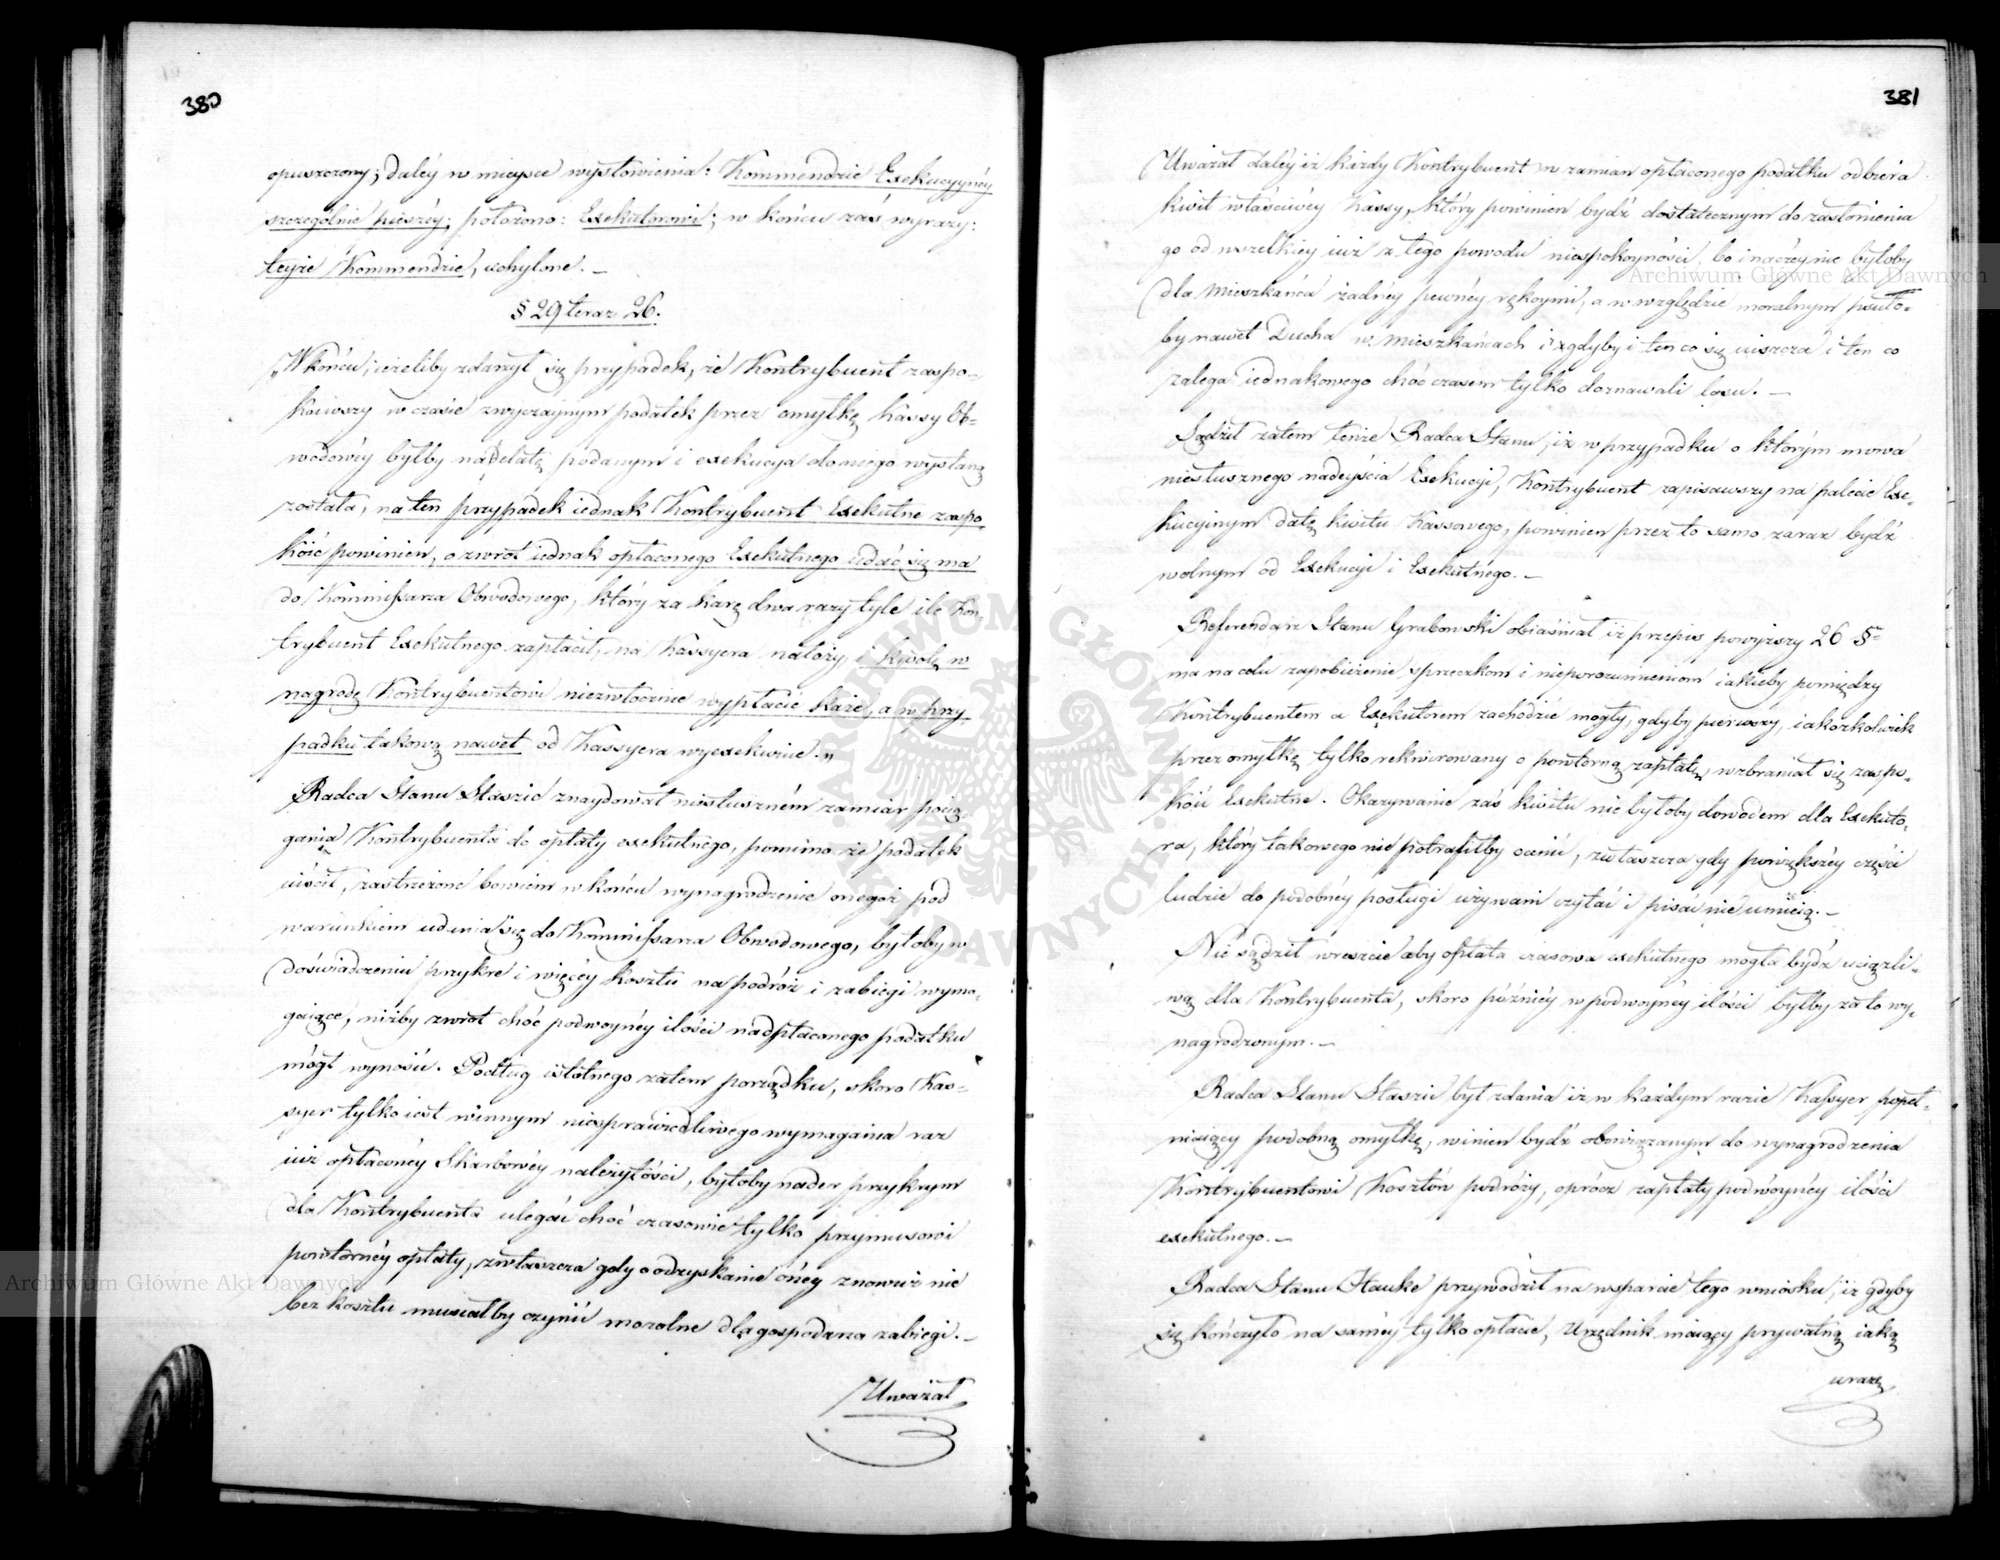 380
opuszczony; daléy w mieysce wysłowienia: Kommendzie Exekucyynéy
szczególnie pieszéy; położono: Exekutorowi; w końcu zaś wyrazy:
teyże Kommendzie, uchylone. –
§ 29 teraz 26.
„W końcu, ieżeliby zdarzył się przypadek, że Kontrybuent zaspo-
koiwszy w czasie zwyczaynym podatek przez omyłkę Kassy Ob-
wodowéy byłby na podanym i exekucya do niego wysłaną
została, na ten przypadek iednak Kontrybuent Exekutne zaspo-
koić powinien, o zwrot iednak opłaconego Exekutnego udać się ma
do Kommissarza Obwodowego, który za karę dwa razy tyle ile Kon-
trybuent Exekutnego zapłacił, na Kassyera nałoży, i kwotę w
nagrodę Kontrybuentowi niezwłocznie wypłacić każe, a w przy
padku takową nawet od Kassyera wyexekwuie.„
Radca Stanu Staszic znaydował niesłuszném zamiar pocią-
gania Kontrybuenta do opłaty exekutnego, pomimo że podatek
uiścił, zastrzeżone bowiem w końcu wynagrodzenie onegoż pod
warunkiem udania się do Kommissarza Obwodowego, byłoby w
doświadczeniu przykre i więcéy kosztu na podróż i zabiegi wyma-
gaiące, niżby zwrot choć podwoynéy ilości nadpłaconego podatku
mógł wynosić. Podług istotnego zatem porządku, skoro Kas-
syer tylko iest winnym niesprawiedliwego wymagania raz
iuż opłaconéy Skarbowéy należytości, byłoby nader przykrym
dla Kontrybuenta ulegać choć czasowie tylko przymusowi
powtórnéy opłaty, zwłaszcza gdy o odzyskanie onéy znowuż nie
bez kosztu musiałby czynić mozolne dla gospodarza zabiegi. –
Uważał
381
Uważał daléy iż każdy Kontrybuent w zamian opłaconego podatku odbiera
kwit właściwéy Kassy, który powinien bydź dostatecznym do zasłonienia
go od wszelkiey iuż z tego powodu niespokoyności, bo inaczéy nie byłoby
dla Mieszkańca żadnéy pewnéy rękoymi, a w względzie moralnym psuło-
by nawet Ducha w Mieszkańcach i gdyby i ten co się uiszcza i ten co
zalega iednakowego choć czasem tylko doznawali losu. –
Sądził zatem tenże Radca Stanu, iż w przypadku o którym mowa
niesłusznego nadeyścia Exekucyi, Kontrybuent zapisawszy na palecie Exe-
kucyinym datę kwitu Kassowego, powinien przez to samo zaraz bydź
wolnym od Exekucyi i Exekutnégo. –
Referendarz Stanu Grabowski obiaśniał iż przepis powyższy 26 §u
ma na celu zapobieżenie sprzeczkom i nieporozumieniom iakieby pomiędzy
Kontrybuentem a Exekutorem zachodzić mogły, gdyby pierwszy, iakożkolwiek
przez omyłkę tylko rekwirowany o powtorną zapłatę, wzbraniał się zaspo-
koić Exekutne. Okazywanie zaś kwitu nie byłoby dowodem dla Exekuto-
ra, który takowego nie potrafiłby ocenić, zwłaszcza gdy powiększéy części
ludzie do podobnéy posługi używani czytać i pisać nie umieią. –
Nie sądził wreszcie aby opłata czasowa exekutnego mogła bydź uciążli-
wą dla Kontrybuenta, skoro późniéy w podwoynéy ilości byłby za to wy-
nagrodzonym. –
Radca Stanu Staszic był zdania iż w każdym razie Kassyer popeł-
niaiący podobną omyłkę, winien bydź obowiązanym do wynagrodzenia
Kontrybuentowi Kosztów podróży, oprócz zapłaty podwoynéy ilości
exekutnego. –
Radca Stanu Hauke przywodził na wsparcie tego wniosku, iż gdyby
się kończyło na saméy tylko opłacie, Urzędnik maiący prywatną iaką
urazę